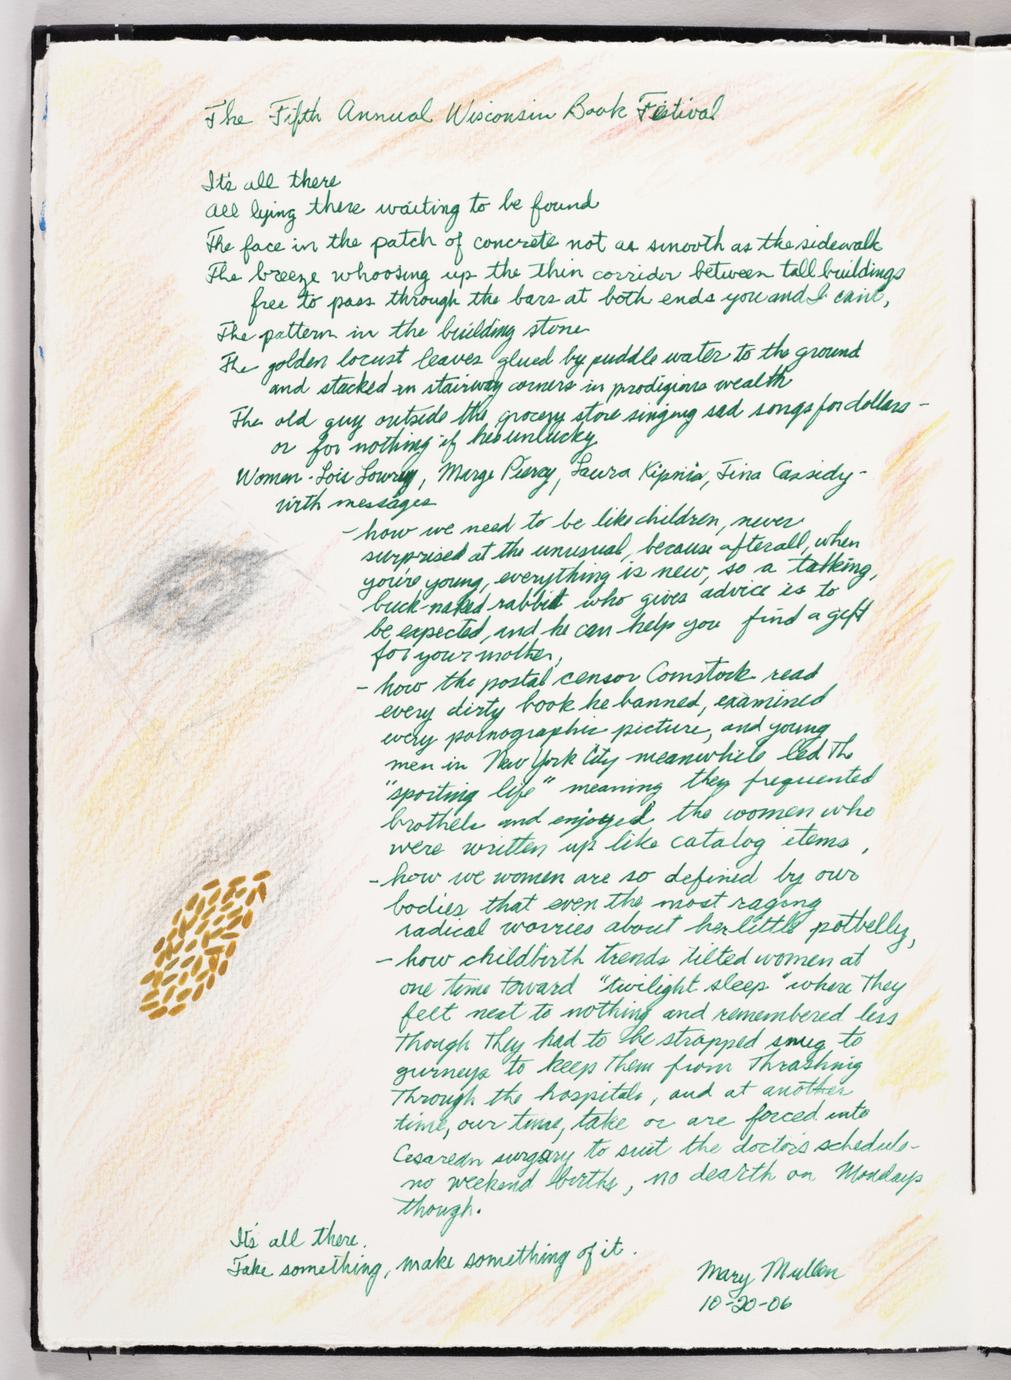 The Fifth Annual Wisconsin Book Festival
It's all there
All lying there waiting to be found
The face in the patch of concrete not as smooth as the sidewalk
The breeze whoosing up the thin corridor between tall buildings
free to pass through the bars at both ends you and I can't,
The pattern in the building stone
The golden locust leaves glued by puddle water to the ground
and stacked in stairway corners in prodigious wealth
The old guy outside the grocery store singing sad songs for dollars -
or for nothing if he's unlucky
Women - Lois Lowry, Marge Piercy, Laura Kipnis, Tina Cassidy -
with messages
- how we need to be like children, never
surprised at the unusual, because afterall, when
you're young, everything is new, so a talking,
buck-naked rabbit who gives advice is to
be expected, and he can help you find a gift
for your mother,
- how the postal censor Comstock read
every dirty book he banned, examined
every pornographic picture, and young
men in New York City meanwhile led the
"sporting life" meaning they frequented
brothels and enjoyed the women who
were written up like catalog items,
- how we women are so defined by our
bodies that even the most raging
radical worries about her little potbelly,
- how childbirth trends tilted women at
one time toward "twilight sleep" where they
felt next to nothing and remembered less
though they had to be strapped snug to
gurneys to keep them from thrashing
through the hospitals, and at another
time, our time, take or are forced into
Cesarean surgery to suit the doctor's schedule -
no weekend births, no dearth on Mondays
though.
It's all there.
Take something, make something of it.
Mary Mullen
10-20-06